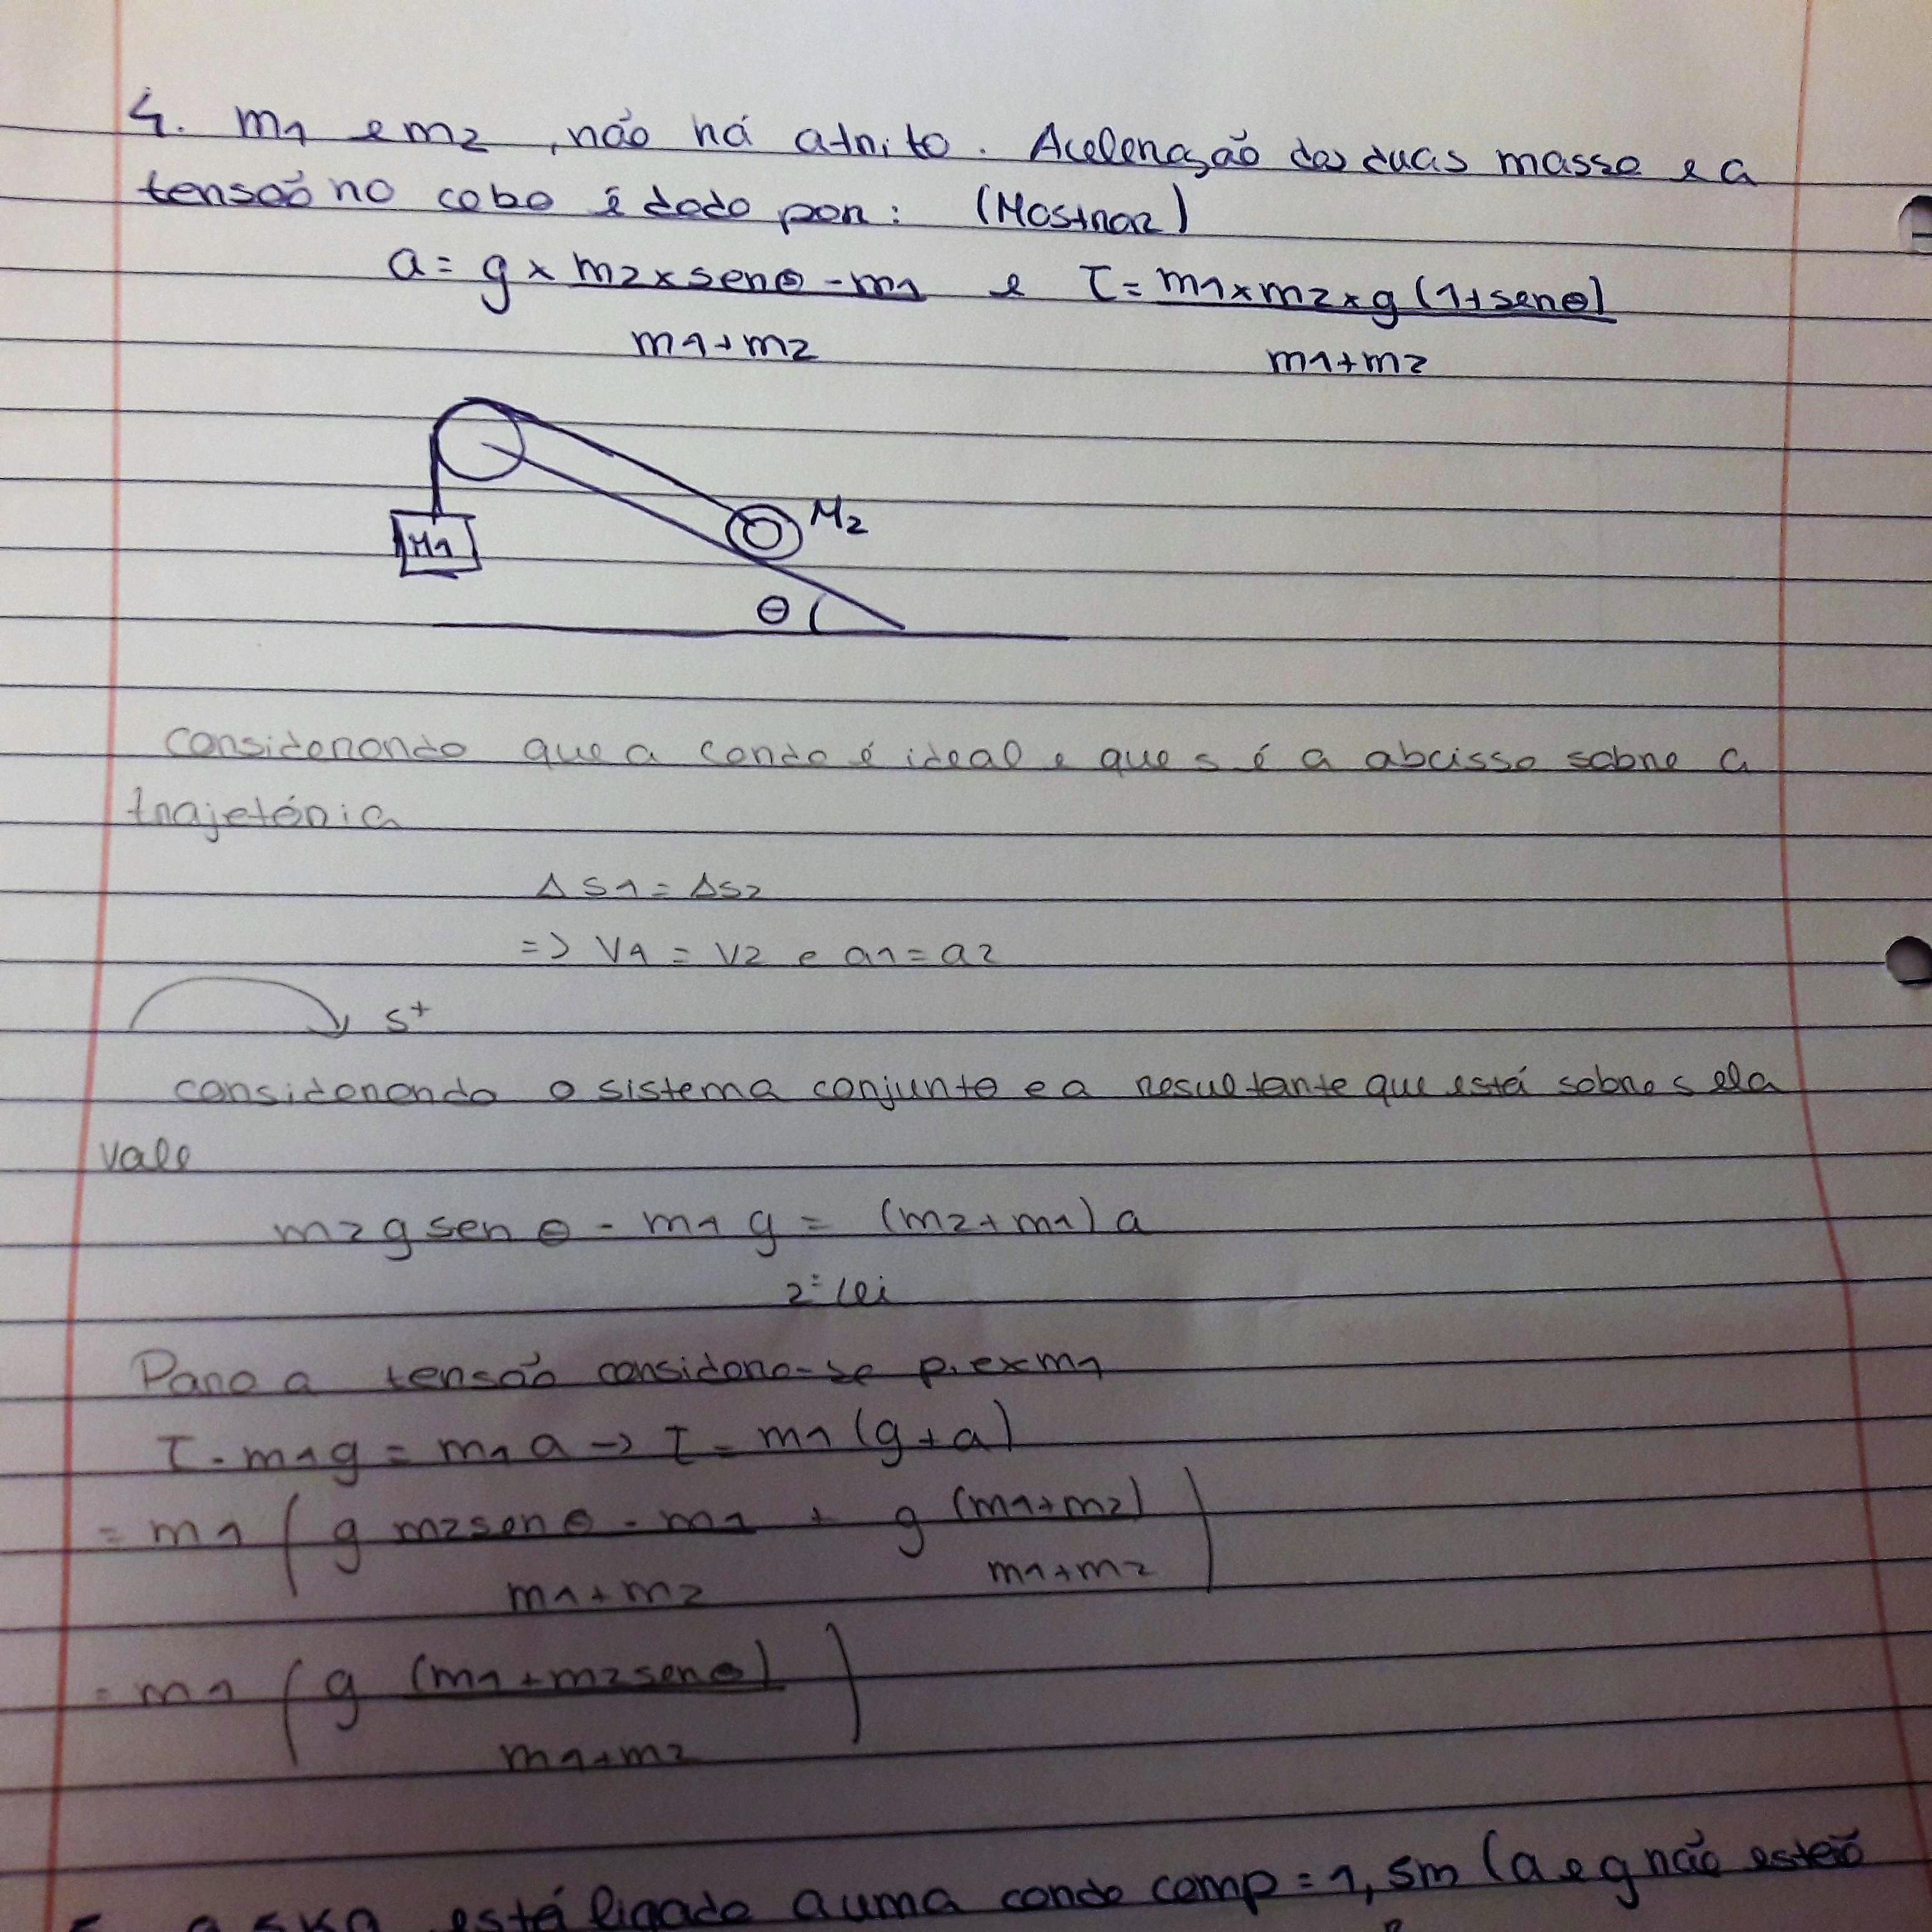 4. m1 e m2, não há atrito. Aceleração das duas massa e a
tensão no cabo é dado por: (Mostrar)
a = g x m2 x senθ - m1 e T = m1 x m2 x g (1+senθ)
m1+m2 m1+m2
M2
M1
θ
Considerando que a corda é ideal e que s é a abcissa sobre a
trajetória
Δs1 = Δs2
=> v1 = v2 e a1 = a2
s+
considerando o sistema conjunto e a resultante que está sobre s ela
vale
m2 g sen θ - m1 g = (m2+m1) a
2ª lei
Para a tensão considera-se p. ex m1
T - m1g = m1 a -> T = m1 (g+a)
= m1 ( g m2senθ - m1 + g (m1+m2) )
m1+m2 m1+m2
= m1 ( g (m1+m2senθ) )
m1+m2
está ligado a uma corda comp = 1,5m (a e g não estão